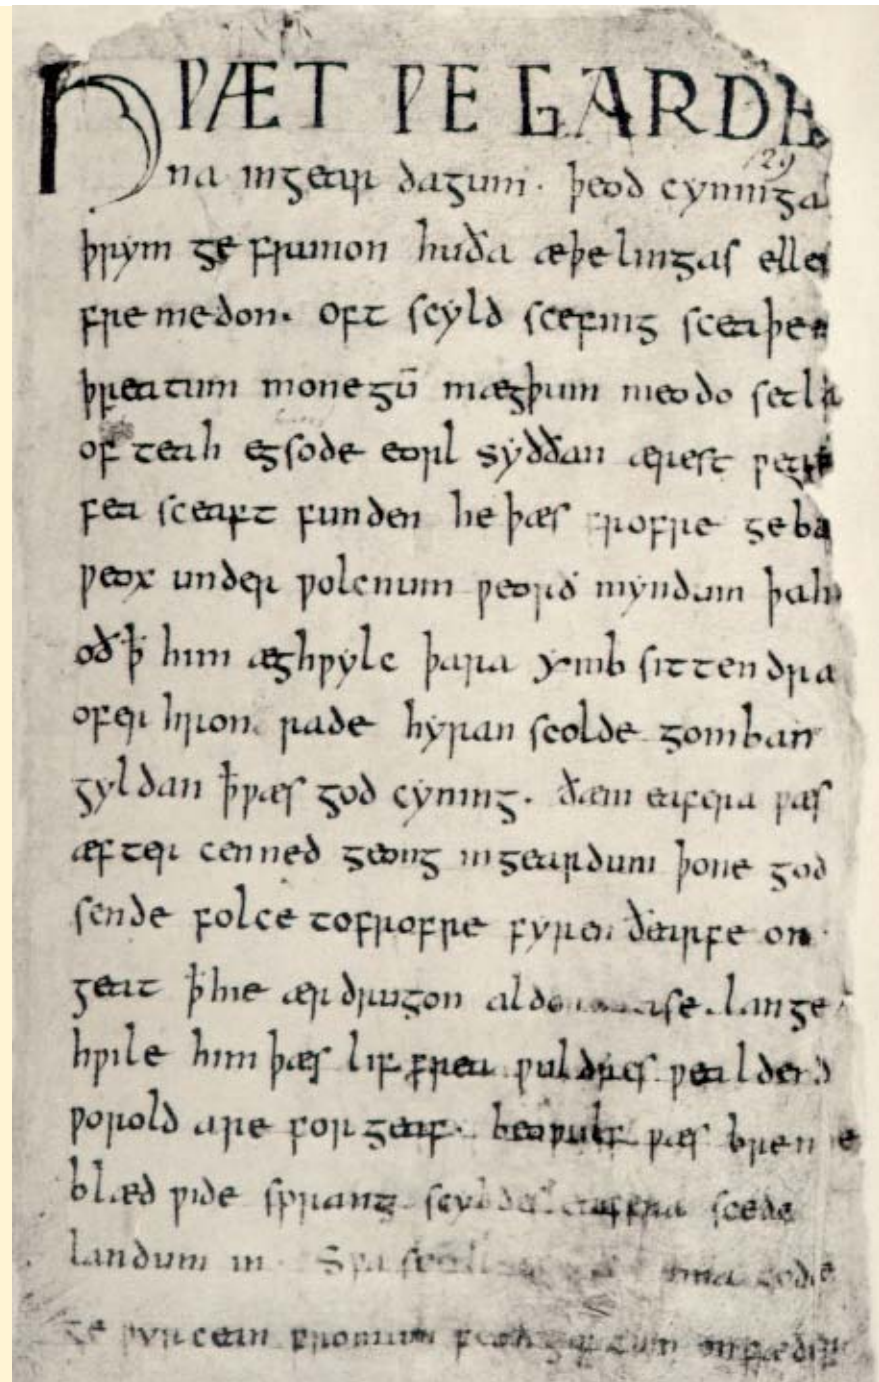 HǷÆT ǷE GARDE
129
na ingear dagum. þeod cyninga
þrym ge frunon huða æþelingas elle
fre medon. oft scyld scefing sceaþe
þreatum monegū mægþum meodo setla
of teah egsode eorl syððan ærest ƿe
fea sceaft funden he þæs frofre geba
ƿeox under ƿolcnum ƿeorð myndum þah
oð ꝥ him æghƿylc þara ymb sittendra
ofer hron rade hyran scolde gomban
gyldan ꝥ ƿæs god cyning. ðæm eafera ƿæs
æfter cenned geong ingeardum þone god
sende folce tofrofre fyren ðearfe on
geat ꝥ hie ær drugon aldo ase. lange
hƿile him þæs lif frea ƿuldres ƿealdend
ƿorold are for geaf. beoƿulf ƿæs breme
blæd ƿide sprang scyldes eafera scede
landum in. Sƿa gode
ge ƿyrcean fromum feoh giftum on fæder